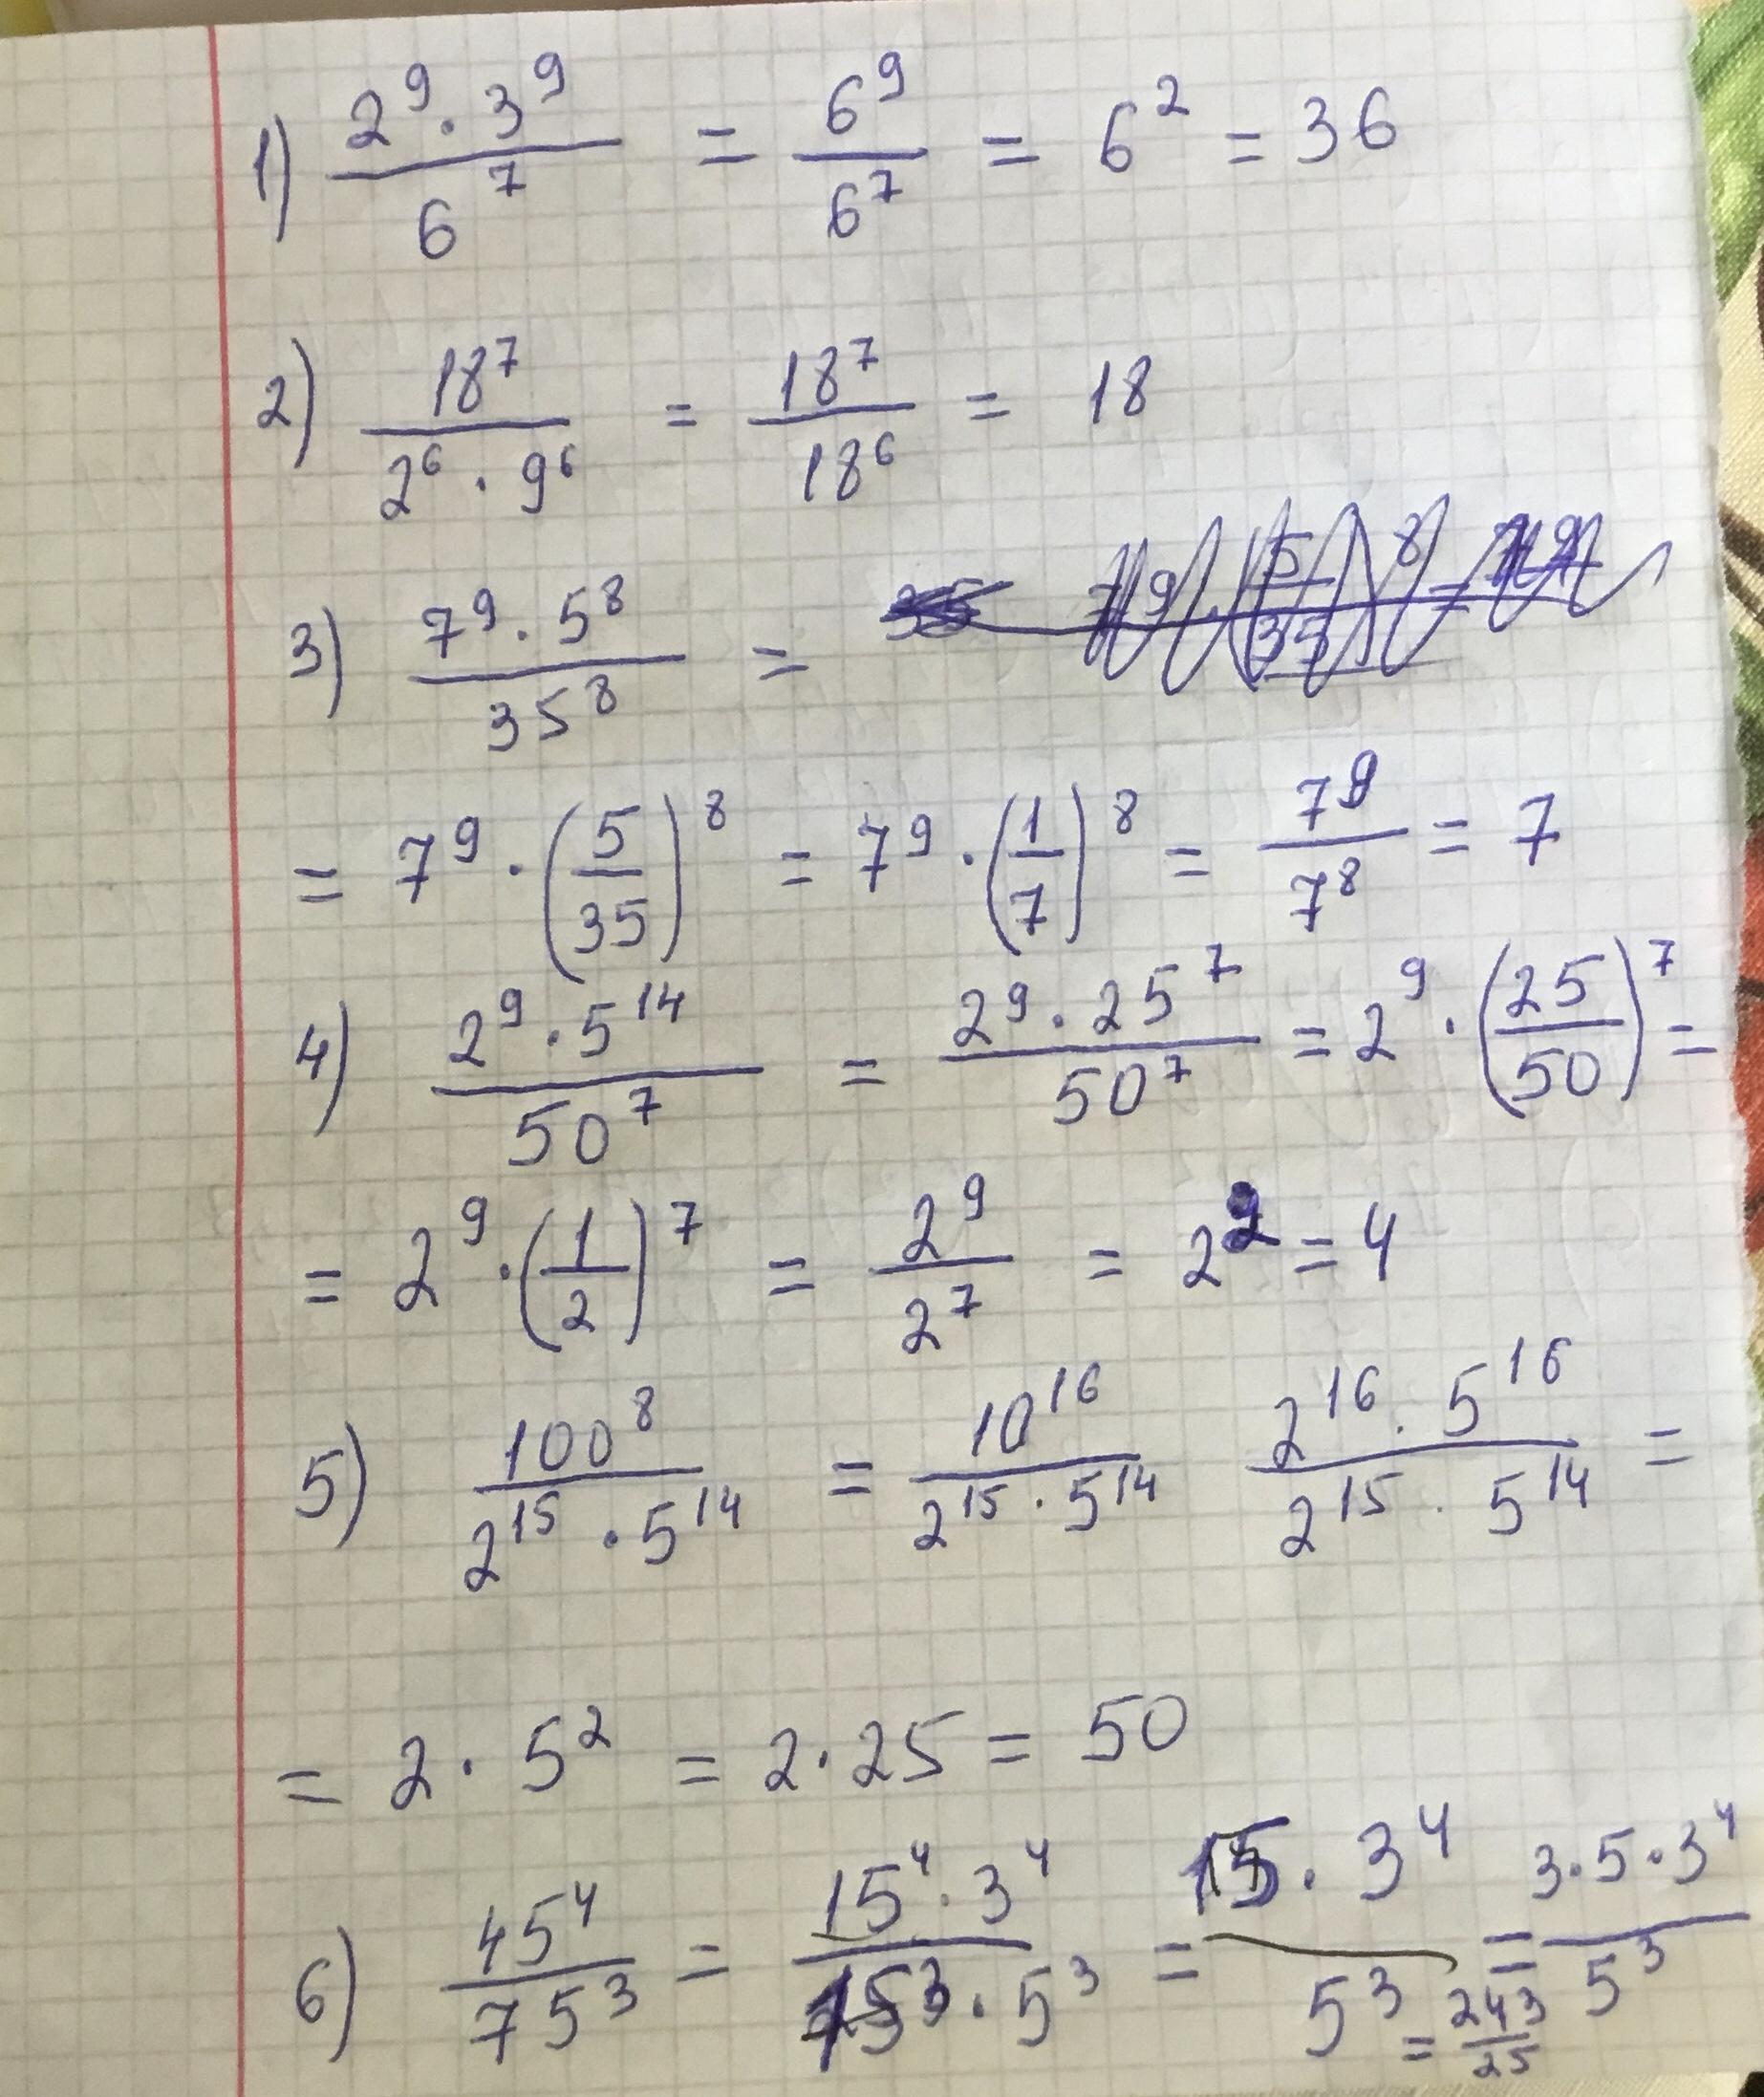 1) (2^9 · 3^9)/(6^7) = 6^9/6^7 = 6^2 = 36
2) 18^7/(2^6 · 9^6) = 18^7/18^6 = 18
3) (7^9 · 5^8)/(35^8) =
= 7^9 · (5/35)^8 = 7^9 · (1/7)^8 = 7^9/7^8 = 7
4) (2^9 · 5^14)/(50^7) = (2^9 · 25^7)/(50^7) = 2^9 · (25/50)^7 =
= 2^9 · (1/2)^7 = 2^9/2^7 = 2^2 = 4
5) 100^8/(2^15 · 5^14) = 10^16/(2^15 · 5^14) (2^16 · 5^16)/(2^15 · 5^14) =
= 2 · 5^2 = 2 · 25 = 50
6) 45^4/75^3 = (15^4 · 3^4)/(15^3 · 5^3) = (15 · 3^4)/(5^3) = (3 · 5 · 3^4)/(5^3)
= 243/25